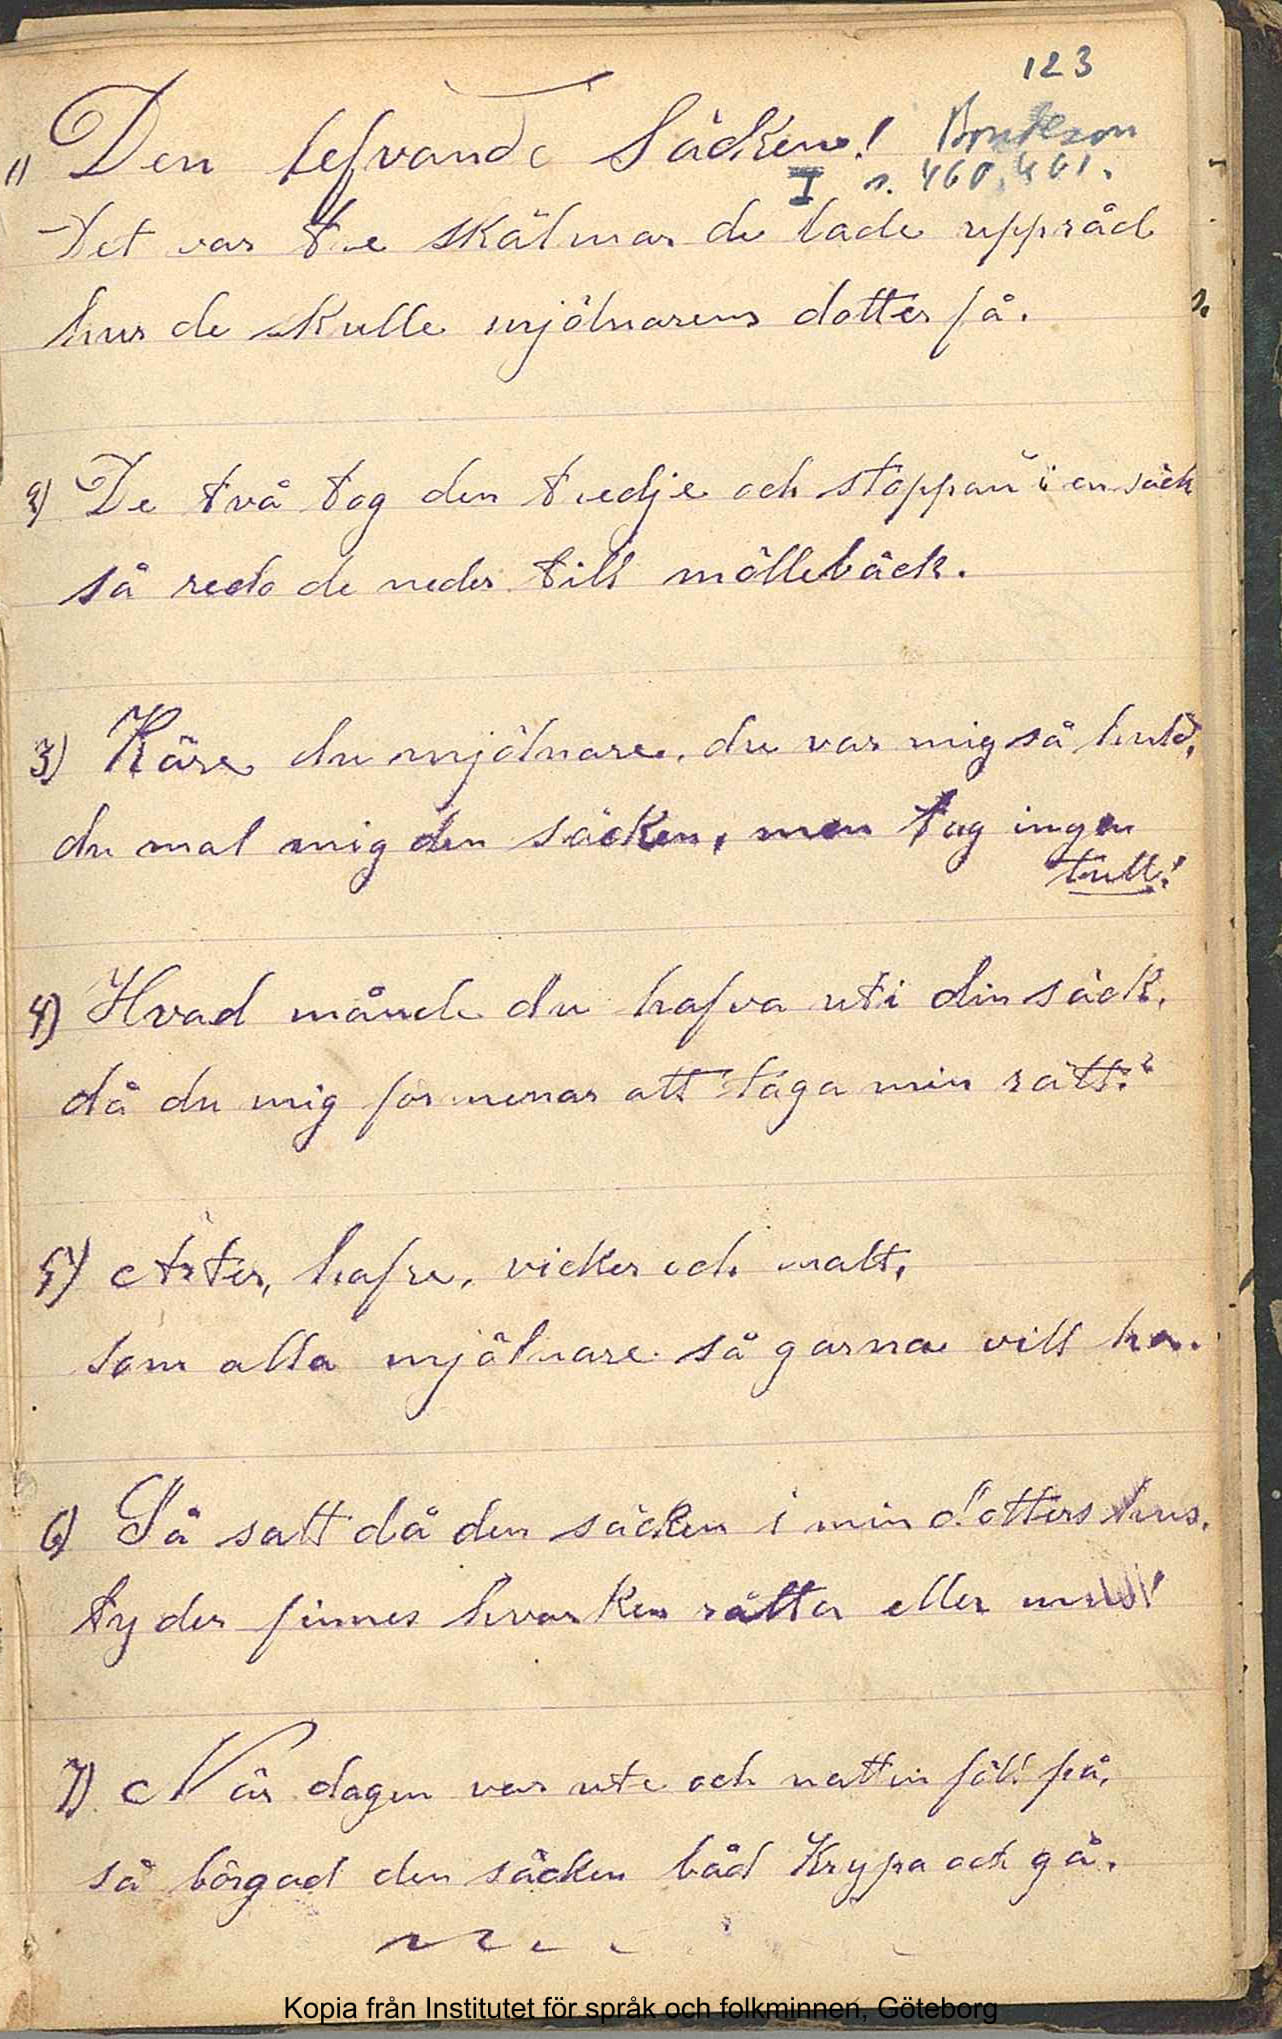 123
Den lefvande Säcken!
Bondeson
I s. 460, 461.
1) Det var tre skälmar de lade uppråd
hur de skulle mjölnarens dotter få.
2) De två tog den tredje och stoppan i en säck
så redo de neder till möllebäck.
3) Käre du mjölnare, du var mig så huld,
du mal mig den säcken, men tag ingen
tull!
4) Hvad månde du hafva uti din säck,
då du mig förmenar att taga min rätt?
5) Ärter, hafre, vicker och malt,
som alla mjölnare så garna vill ha.
6) Så satt då den säcken i min dotters hus,
ty der finnes hvarken råtta eller mus!
7) När dagen var ute och natten föll på,
så börgad den säcken båd Krypa och gå.
Kopia från Institutet för språk och folkminnen, Göteborg